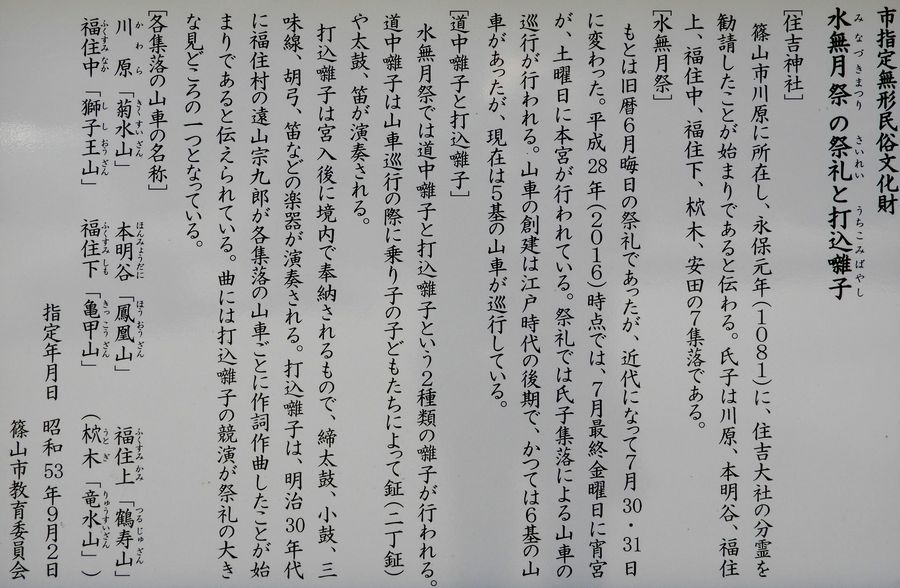 市指定無形民俗文化財
水無月祭の祭礼と打込囃子
みなづきまつり さいれい うちこみばやし
[住吉神社]
篠山市川原に所在し、永保元年(1081)に、住吉大社の分霊を
勧請したことが始まりであると伝わる。氏子は川原、本明谷、福住
上、福住中、福住下、枕木、安田の7集落である。
[水無月祭]
もとは旧暦6月晦日の祭礼であったが、近代になって7月30・31日
に変わった。平成28年(2016)時点では、7月最終金曜日に宵宮
が、土曜日に本宮が行われている。祭礼では氏子集落による山車の
巡行が行われる。山車の創建は江戸時代の後期で、かつては6基の山
車があったが、現在は5基の山車が巡行している。
[道中囃子と打込囃子]
水無月祭では道中囃子と打込囃子という2種類の囃子が行われる。
道中囃子は山車巡行の際に乗り子の子どもたちによって鉦(二丁鉦)
や太鼓、笛が演奏される。
打込囃子は宮入後に境内で奉納されるもので、締太鼓、小鼓、三
味線、胡弓、笛などの楽器が演奏される。打込囃子は、明治30年代
に福住村の遠山宗九郎が各集落の山車ごとに作詞作曲したことが始
まりであると伝えられている。曲には打込囃子の競演が祭礼の大き
な見どころの一つとなっている。
[各集落の山車の名称]
川原「菊水山」 本明谷「鳳凰山」 福住上「鶴寿山」
かわら きくすいざん ほんみょうだに ほうおうざん ふくすみかみ つるじゅざん
福住中「獅子王山」 福住下「亀甲山」 (枕木「竜水山」)
ふくすみなか ししおうざん ふくすみしも きっこうざん うとぎ りゅうすいざん
指定年月日 昭和53年9月2日
篠山市教育委員会